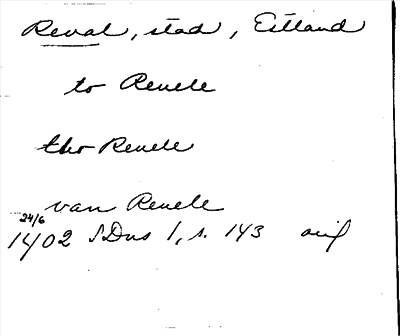 Reval, stad, Estland
to Reuele
tho Reuele
van Reuele
24/6
1402 SDns 1, s. 143 orig